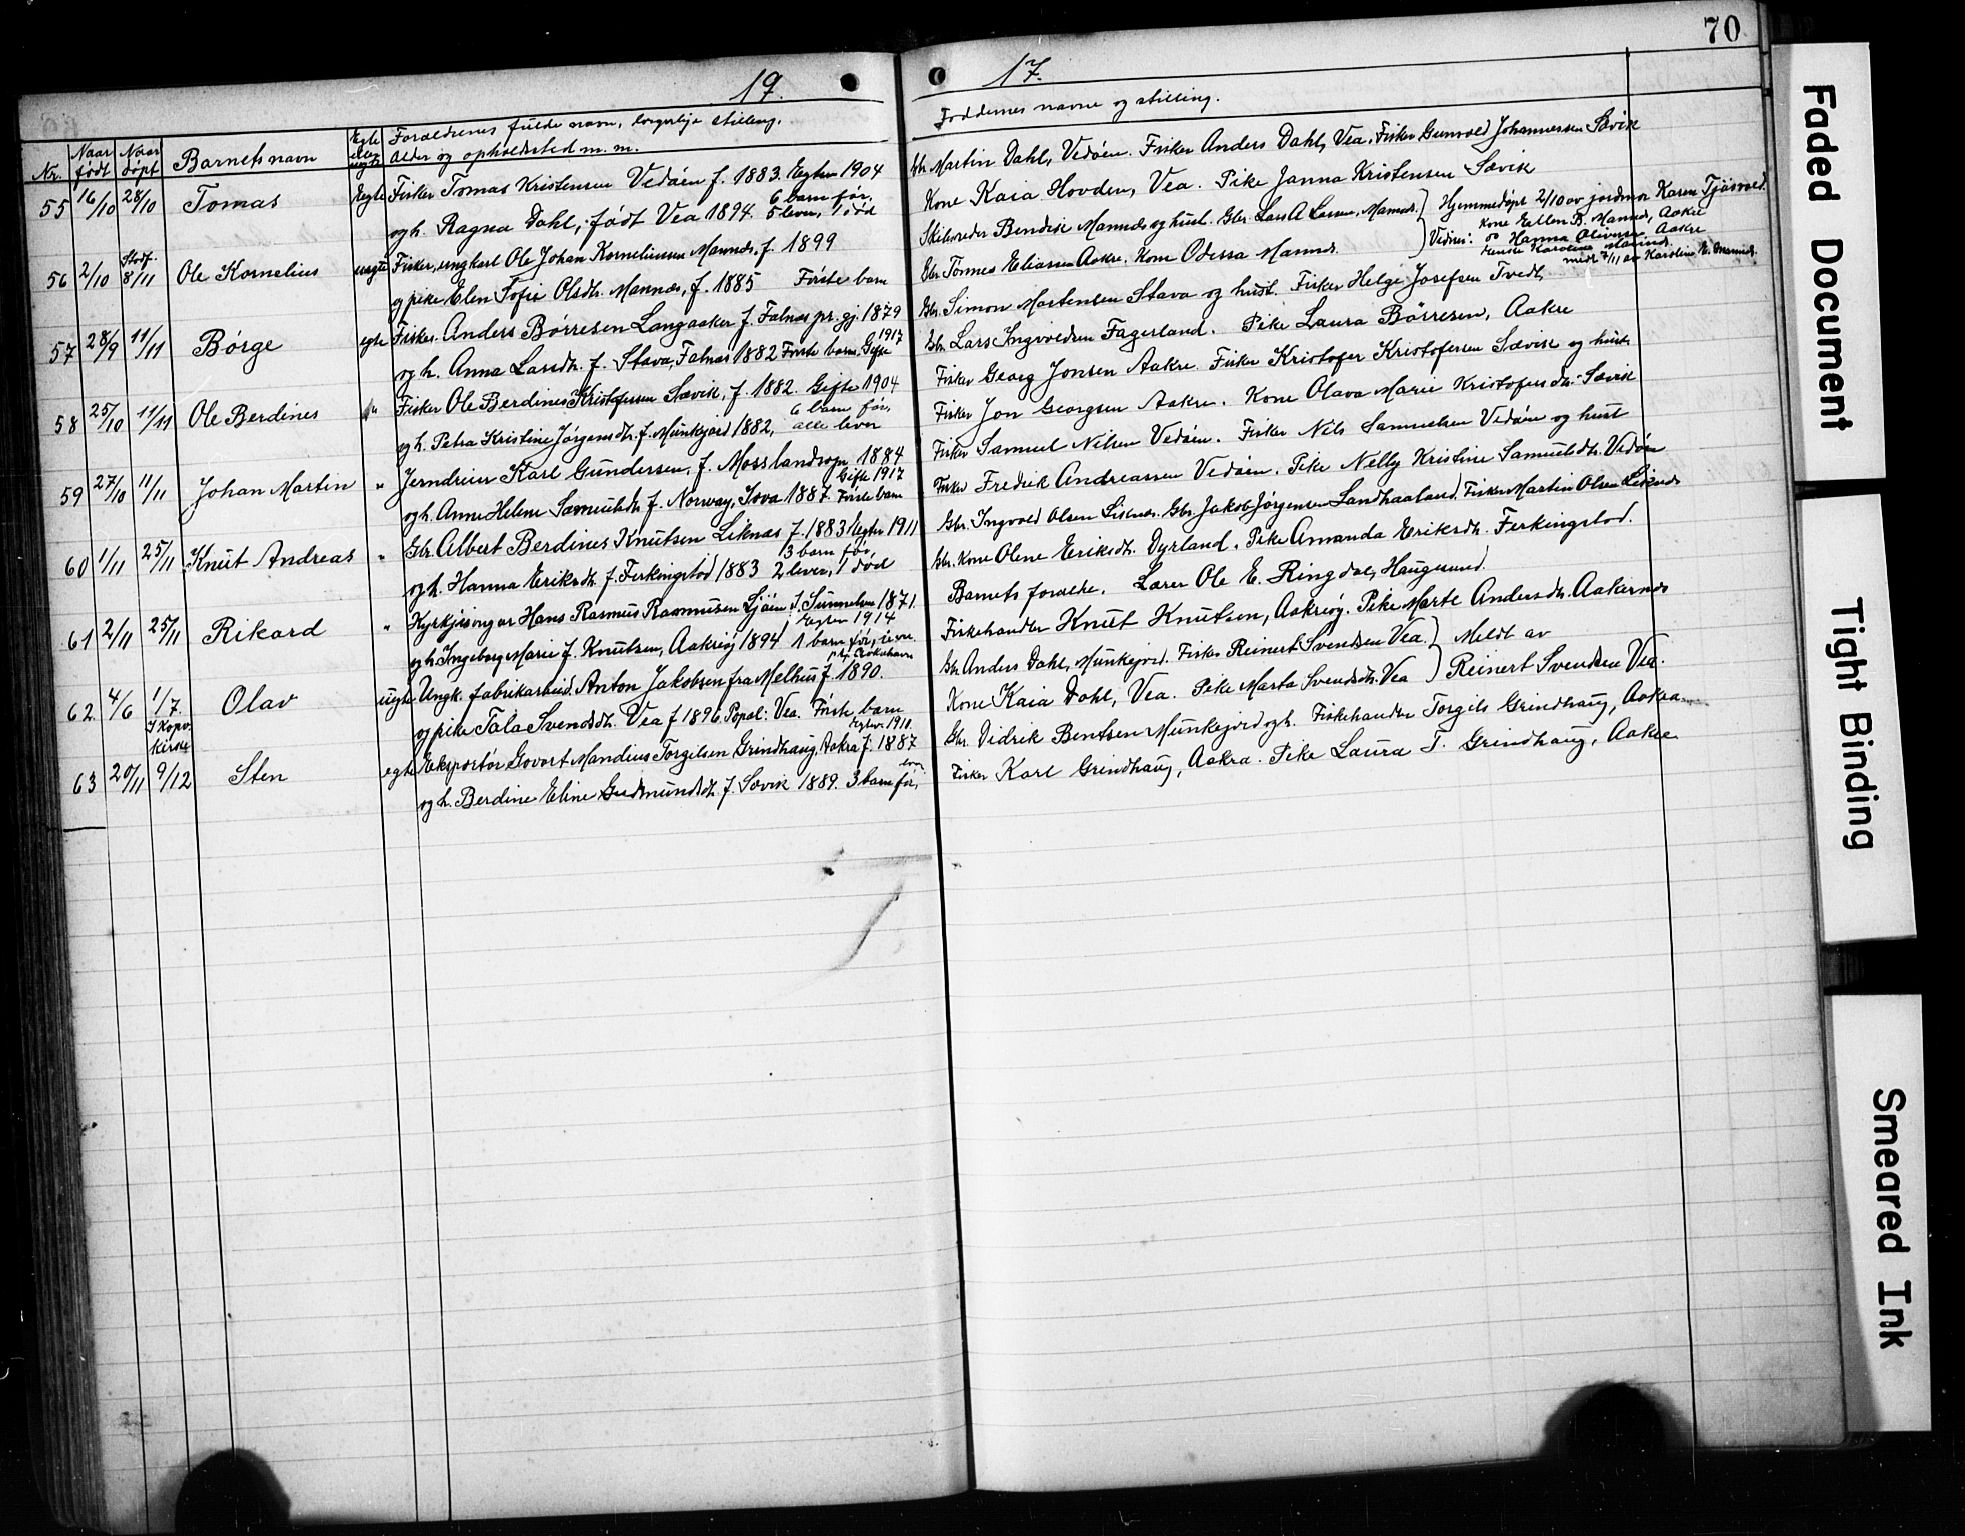 70
19.
17.
Nr. Naar født Naar døpt Barnets navn Egte eller uegte Forældrenes fulde navn, borgerlige stilling, alder og opholdssted m. m.
Faddernes navne og stilling.
55 16/10 28/10 Tomas Egte Fisker Tomas Kristensen Vedøen f. 1883. Egtev 1904
og h. Ragna Dahl, født Vea 1894. 6 barn før, 5 lever, 1 død
Gbr Martin Dahl, Vedøen. Fisker Anders Dahl, Vea, Fisker Gunvold Johannessen Sævik
Kone Kaia Hovden, Vea. Pike Janna Kristensen Sævik
56 2/10 Stadf. 8/11 Ole Kornelius uegte Fisker, ungkarl Ole Johan Korneliussen Mannes, f. 1899
og pike Elen Sofie Olsdtr. Mannes, f. 1885 Første barn
Skibsreder Bendik Mannes og hust. Gbr. Lars A Larsen, Mannes.
Gbr. Tonnes Eliassen Aakre. Kone Odessa Mannes.
Hjemmedøpt 2/10 av jordmor Karen Tjøsvold.
Vidner: Kone Ellen B. Mannes, Aakre
" Hanna Olivesen, Aakre
57 28/9 11/11 Børge egte Fisker Anders Børresen Langaaker f. Falnes pr.gj. 1879
og h. Anna Larsdtr. f. Stava, Falnes 1882 Første barn. Gifte 1917
Gbr. Simon Mortensen Stava og hust. Fisker Helge Josefsen Tvedt,
Gbr. Lars Ingvoldsen Fagerland. Pike Laura Børresen, Aakre
58 25/10 11/11 Ole Berdines " Fisker Ole Berdines Kristofersen Sævik, f. 1882 Gifte 1904
og h. Petra Kristine Jørgensdtr. f. Munkejord 1882, 6 barn før, alle lever
Fisker Georg Jonsen Aakre. Fisker Kristofer Kristofersen Sævik og hust.
Fisker Jon Georgsen Aakre. Kone Olava Marie Kristofersdtr. Sævik
59 27/10 11/11 Johan Martin " Jerndreier Karl Gundersen, f. Moss landsogn 1884
og h. Anne Helene Samuelsdtr. f. Norway, Iova 1887. Første barn Gifte 1917
Fisker Samuel Nilsen Vedøen. Fisker Nils Samuelsen Vedøen og hust
Fisker Fredrik Andreassen Vedøen. Pike Nelly Kristine Samuelsdtr. Vedøen
60 1/11 25/11 Knut Andreas " Gbr. Albert Berdines Knutsen Liknes f. 1883 Egtev 1911
og h. Hanna Eriksdtr. f. Ferkingstad 1883 3 barn før, 2 lever, 1 død
Gbr. Ingvold Olsen Liknes. Gbr. Jakob Jørgensen Sandhaaland. Fisker Martin Olsen Liknes
Gbr. Kone Olene Eriksdtr. Dyrland. Pike Amanda Eriksdtr. Ferkingstad.
61 2/11 25/11 Rikard " Kyrkjesongar Hans Rasmus Rasmusen Sjøen f. Sunnelven 1871.
og h. Ingeborg Marie f. Knutsen, Aakreøy 1894 Egtev 1914 1 barn før,
Barnets foreldre. Lærer Ole E. Ringdal, Haugesund.
Fiskehandler Knut Knutsen, Aakreøy. Pike Marte Andersdtr. Aakernes
62 4/6 1/7 I Kopv. kirke Olav uegte Ungk. fabrikarbeid. Anton Jakobsen fra Melhus f. 1890.
og pike Tala Svendsdtr. Vea f 1896. Popol: Vea. Første barn
Gbr Anders Dahl, Munkejord. Fisker Reinert Svendsen Vea. Meldt av
Kone Kaia Dahl, Vea. Pike Marta Svendsdtr. Vea Reinert Svendsen Vea.
63 20/11 9/12 Sten egte Eksportør Govart Mandius Torgilsen Grindhaug, Aakra f. 1887 Egtev. 1910.
og h. Berdine Eline Gudmundsdtr. f. Sævik 1889. 3 barn før, lever
Gbr. Didrik Bentsen Munkejord og h. Fiskehandler Torgils Grindhaug, Aakra
Fisker Karl Grindhaug, Aakra. Pike Laura T. Grindhaug, Aakre
Faded Document
Tight Binding
Smeared Ink